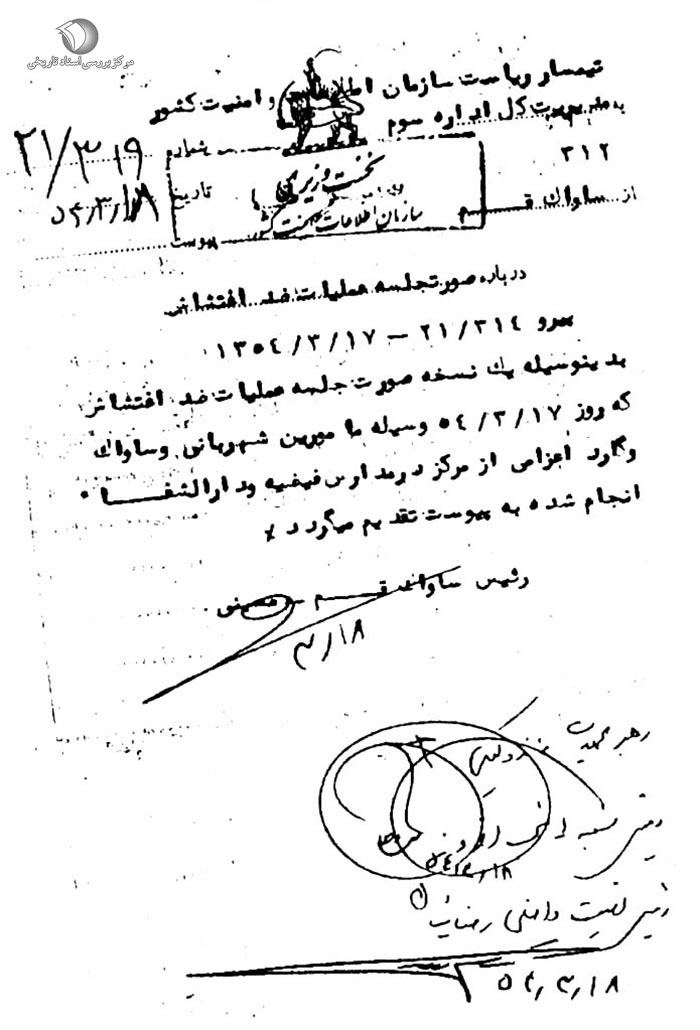 مرکز بررسی اسناد تاریخی
تیمسار ریاست سازمان اطلاعات و امنیت کشور
به مدیریت کل اداره سوم
۳۱۲
از ساواک قم
شماره ۲۱/۳۱۹
تاریخ ۵۴/۳/۱۸
پیوست
نخست وزیری
سازمان اطلاعات و امنیت کشور
درباره صورتجلسه عملیات ضد اغتشاش
پیرو ۲۱/۳۱۴ – ۱۳۵۴/۳/۱۷
بدینوسیله یک نسخه صورت جلسه عملیات ضد اغتشاش
که روز ۵۴/۳/۱۷ وسیله مامورین شهربانی و ساواک
وگارد اعزامی از مرکز درمدارس فیضیه ودارالشفا
انجام شده به پیوست تقدیم میگردد
رئیس ساواک قم – معینی
۳/۱۸
رهبر عملیات
رئیس
۵۴/۳/۱۸
رئیس امنیت داخلی
۵۴/۳/۱۸